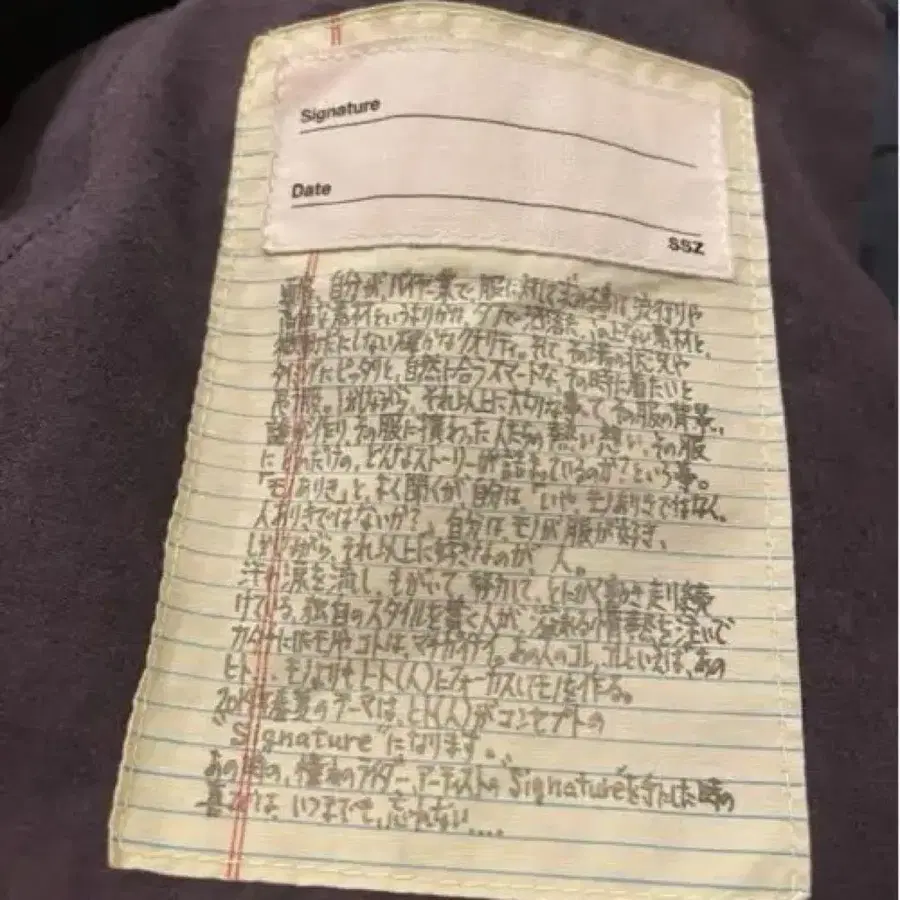 Signature
Date
SSZ
自分が、バイヤー業で、服に対して求める事は、流行りや
素材というよりかは、タフで洒落た、素材と、
確かなクオリティ。そして、その場の
ピッタリと、自然に合うスマートな、その時に着たいと
思う服。しかしながら、それ以上に大切な事って、その服の背景、
誰が作り、その服に携わった人たちの熱い想い、その服
にどれだけの、どんなストーリーが詰まっているのか?という事。
「モノありき」と、よく聞くが、自分は、「いや、モノありきではなく、
人ありきではないか?」、自分は、モノが、服が好き、
しかしながら、それ以上に好きなのが 人。
汗や涙を流し、もがいて、とにかく動き走り続
けている、独自のスタイルを貫く人が、溢れる情熱を注いで
カタチにしたモノやコトは、マチガイナイ。あの人のコレ、コレといえば、あの
ヒト、モノよりもヒト(人)にフォーカスしてモノを作る。
2019年春夏のテーマは、ヒト(人)がコンセプトの
"Signature"になります。
あの時の、憧れのライダー、アーティストの"Signature"を手にした時の
喜びは、いつまでも、忘れない....